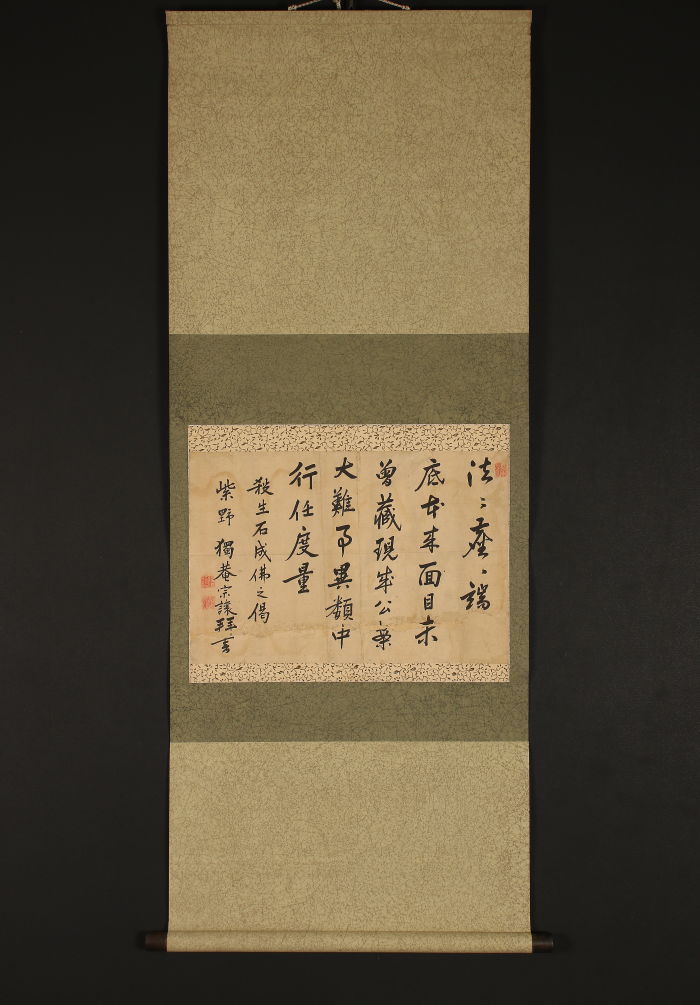 法〻塵〻端
底本来面目未
曽藏現成公案
大難事異類中
行任度量
殺生石成佛之偈
紫野獨菴宗譲拜書